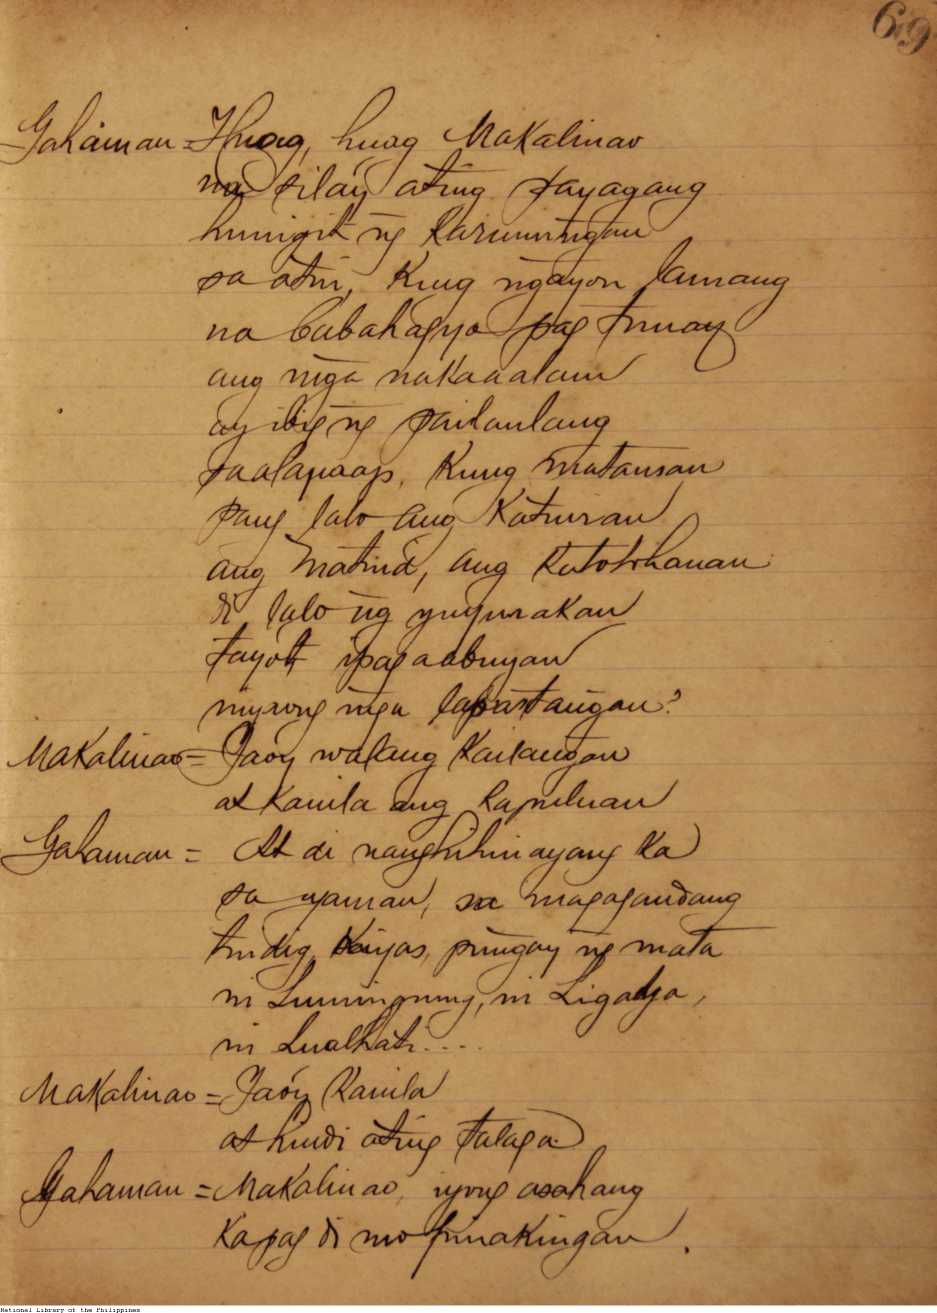 69
Gahaman = Huag, huag Makalinao
na sila'y ating payagang
humigit ng karunungan
sa atin, Kung ngayon lamang
na babahagya pag tunay
ang mga nakaaalam
ay ibig ng pailanlang
sa alapaap, Kung matamsan
pang lalo ang Katuiran
ang matuid, ang Katotohanan
di lalo ng yuyurakan
tayo't ipagaabuyan
niyaong mga lapastangan?
Makalinao = Yao'y walang Kailangan
at Kanila ang kapuluan
Gahaman = At di nanghihinayang Ka
sa yaman, sa magagandang
tindig, Kiyas, pungay ng mata
ni Luningning, ni Ligaya,
ni Lualhati....
Makalinao = Yao'y Kanila
at hindi ating talaga
Gahaman = Makalinao, iyong asahang
Kapag di mo pinakingan.
National Library of the Philippines